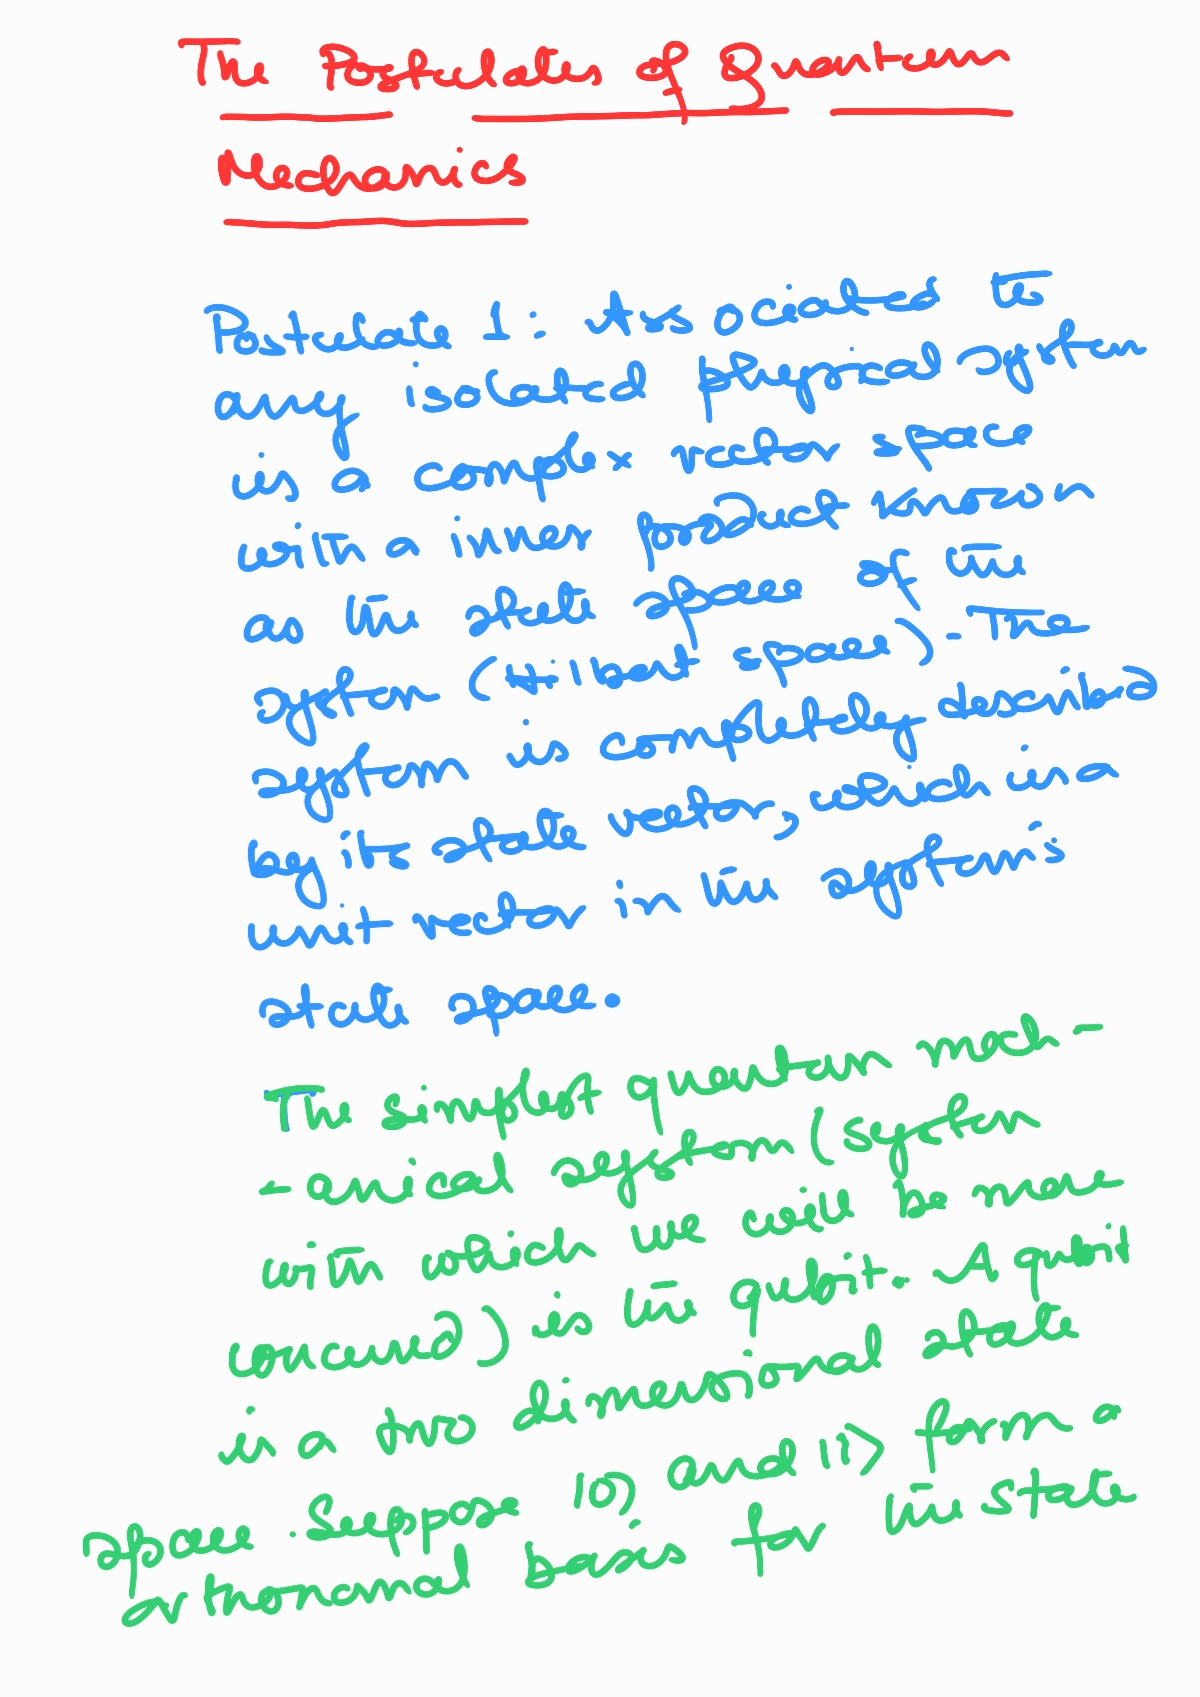 The Postulates of Quantum
Mechanics
Postulate 1: Associated to
any isolated physical system
is a complex vector space
with a inner product known
as the state space of the
system (Hilbert space). The
system is completely described
by its state vector, which is a
unit vector in the system's
state space.
The simplest quantum mech-
-anical system (system
with which we will be more
concerned) is the qubit. A qubit
is a two dimensional state
space. Suppose |0⟩ and |1⟩ form a
orthonormal basis for the state